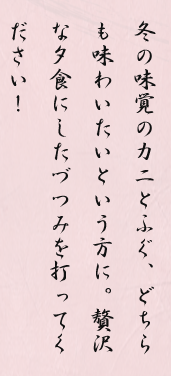 冬の味覚のカニとふぐ、どちら
も味わいたいという方に。贅沢
な夕食にしたづつみを打ってく
ださい！